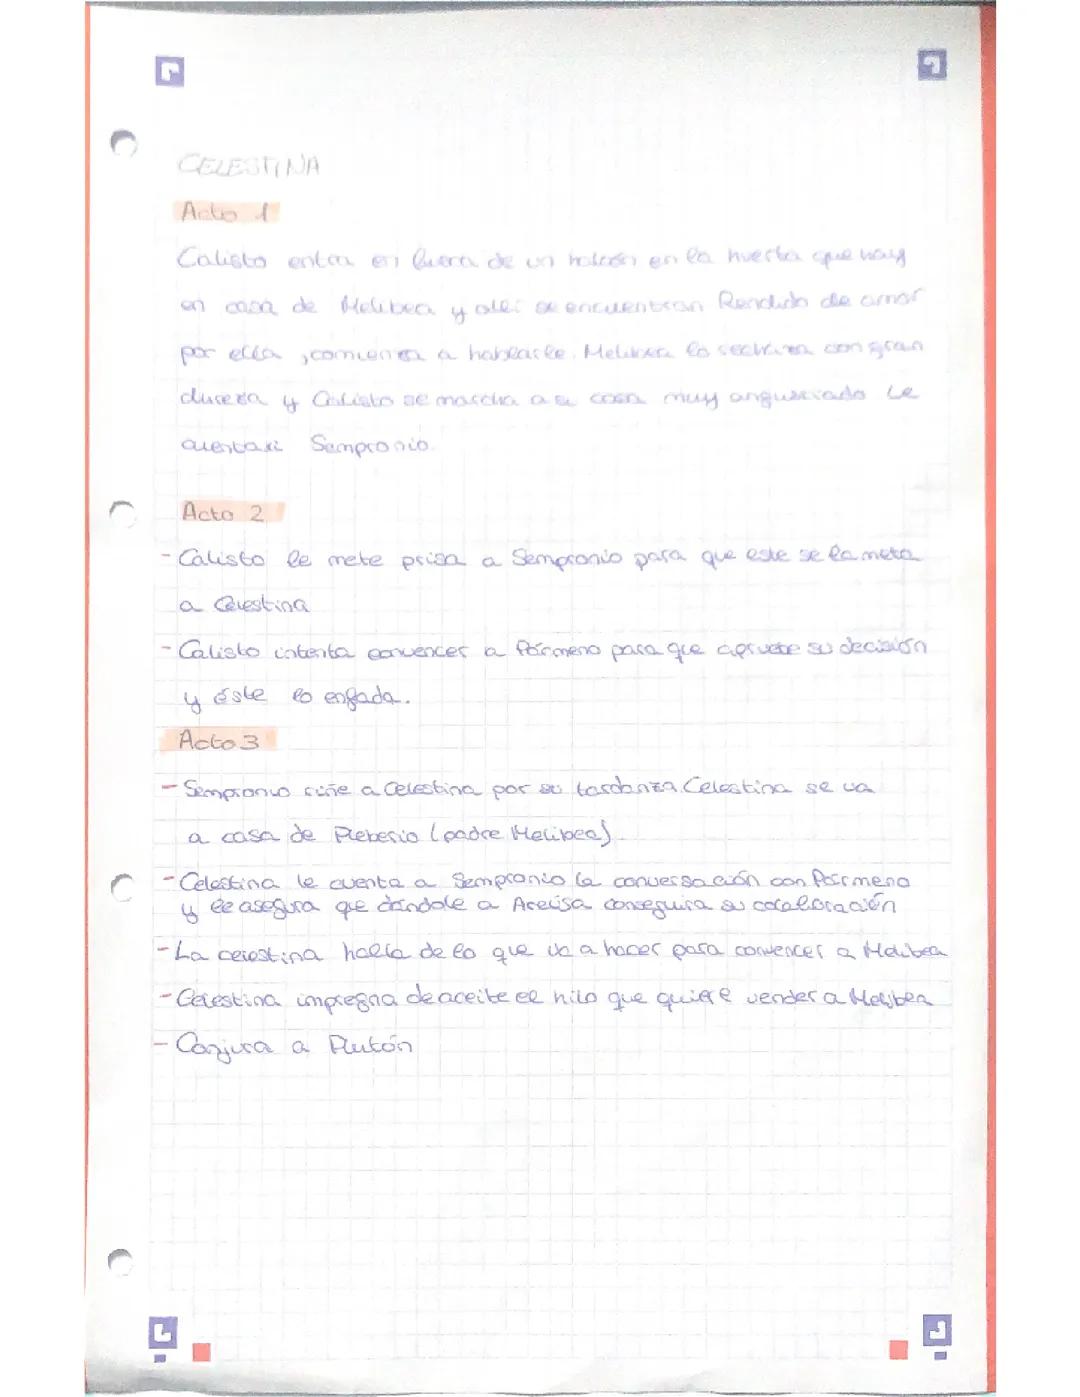 CELESTINA
Acto 1
Calisto entra en busca de un halcón en la huerta que hay
en casa de Melibea y allí se encuentran Rendido de amor
por ella, comienza a hablarle. Melibea lo rechaza con gran
dureza y Calisto se marcha a su casa muy angustiado Le
Sempronio.
Acto 2
- Calisto le mete prisa a Sempronio para que este se la meta
a Celestina
- Calisto intenta convencer a Pármeno para que apruebe su decisión
y éste lo enfada.
Acto 3
- Sempronio riñe a Celestina por su tardanza Celestina se va
a casa de Pleberio (padre Melibea).
- Celestina le cuenta a Sempronio la conversación con Pármeno
y le asegura que dándole a Areúsa conseguira su colaboración
- La celestina habla de lo que va a hacer para convencer a Melibea
- Celestina impregna de aceite el hilo que quiere vender a Melibea
- Conjura a Plutón